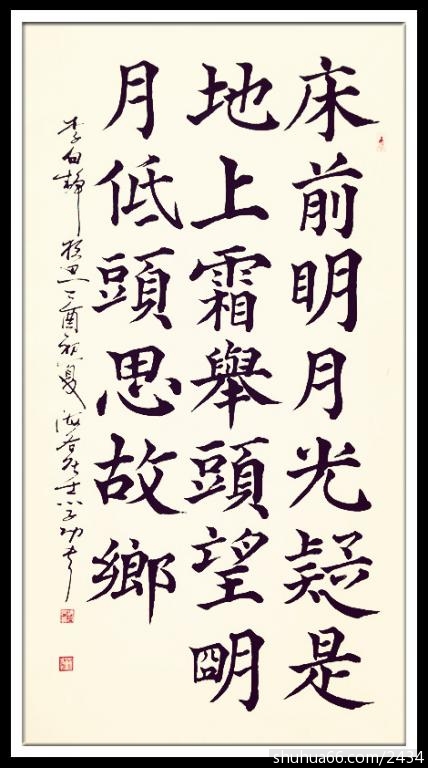 床前明月光疑是
地上霜舉頭望朙
月低頭思故鄉
李白靜夜思丁酉初夏
shuhua66.com/2434